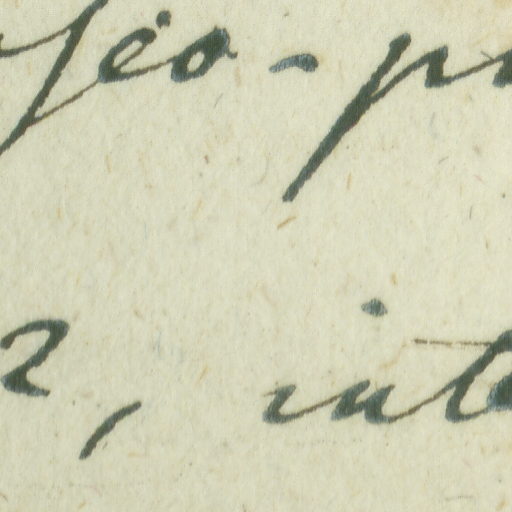 géo-pr
2, inte